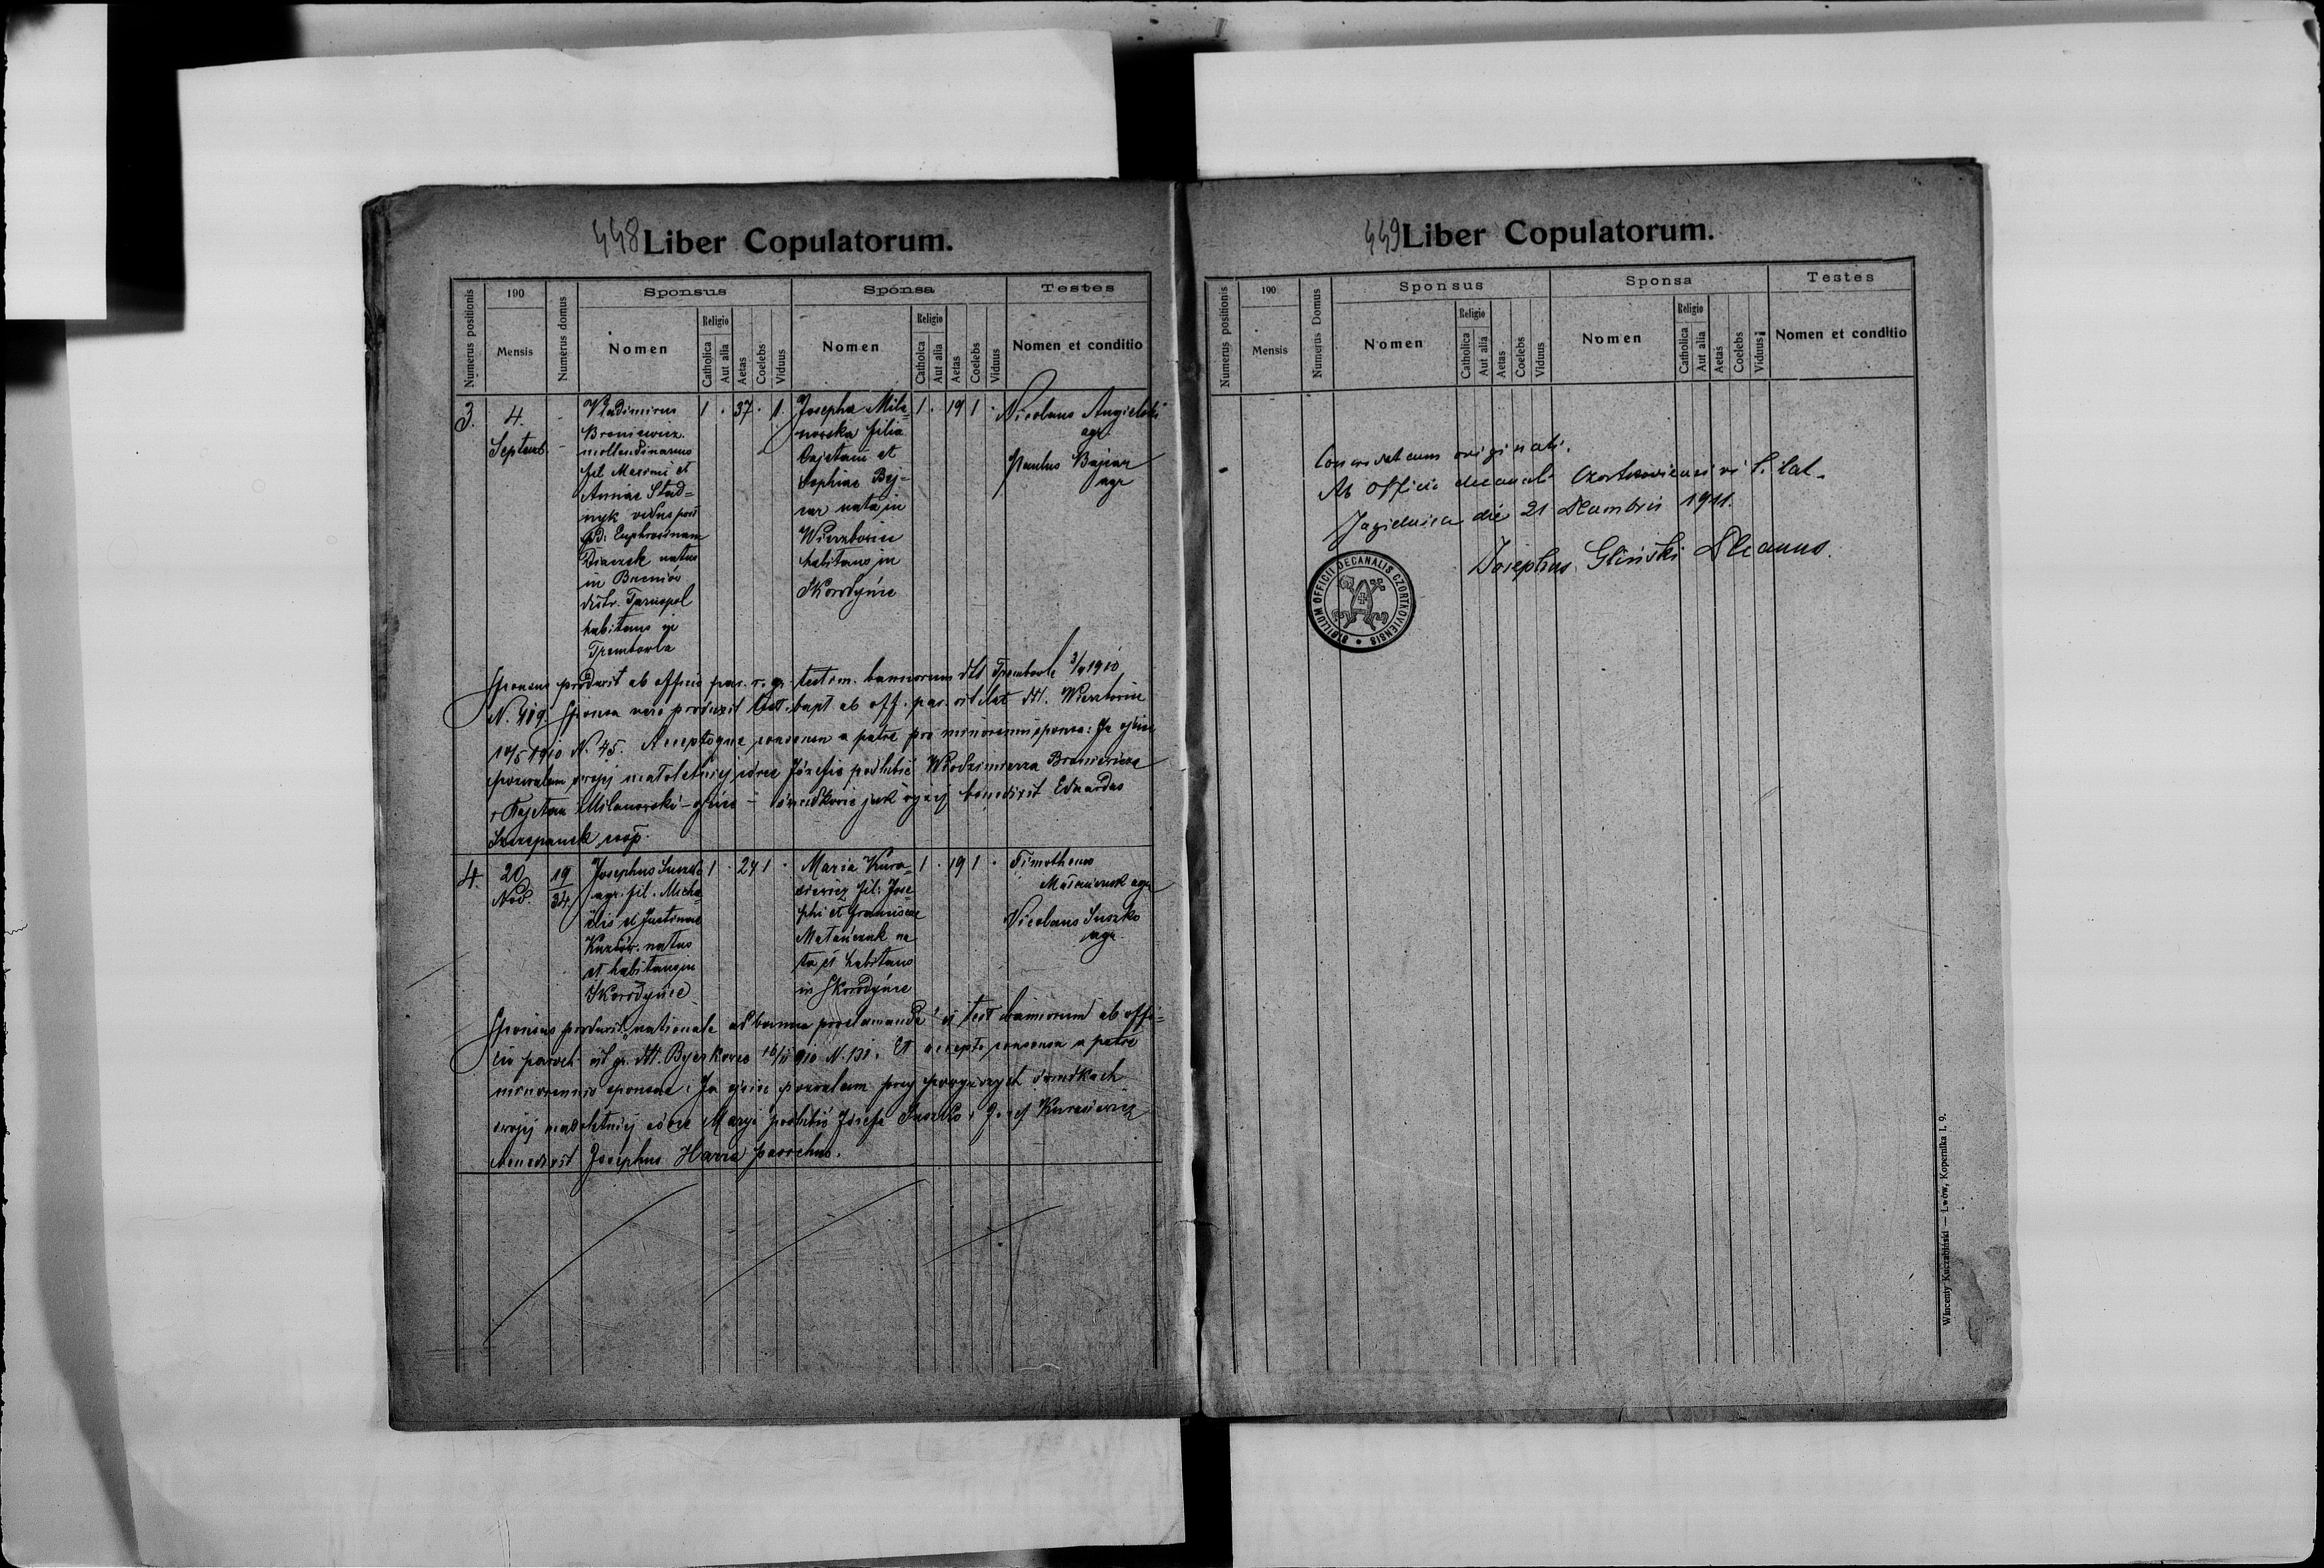 448 Liber Copulatorum.
Numerus positionis
190
Mensis
Numerus domus
Sponsus
Nomen
Religio
Catholica
Aut alia
Aetas
Coelebs
Viduus
Sponsa
Nomen
Religio
Catholica
Aut alia
Aetas
Coelebs
Viduus
Testes
Nomen et conditio
3. 4. Septemb.
Vladimirus
Broniewicz
mollendinarius
fil. Maximi et
Annae Stad=
nyk viduus post
Euphrosinam
natus
in
distr. Tarnopol
habitans in
Trembowla
1 . 37 . 1.
Josepha Mila=
nowska filia
Cajetani et
Sophiae Baj=
car nata in
Wierzbowiec
habitans in
Skorodyńce
1 . 19 1 .
Nicolaus Angielski
agr.
Paulus Bajcar
agr
Sponsus produxit ab officio par. r. gr. testim. bannorum dtt Trembowla 3/9 1910
N. 419 Sponsa vero produxit test. bapt ab off. par. rit lat dtt. Wierzbowiec
10/5 1910 N. 45. Acceptoque consensu a patre pro minorenni sponsa: Ja ojciec
pozwalam swojej małoletniej córce Józefie poślubić Włodzimierza Broniewicza
+ Kajetan Milanowski - ojciec - świadkowie jak wyżej benedixit Eduardus
Szczepanek coop.
4. 20 Nov. 19/34
Josephus Suszko
agr. fil. Micha=
elis et Justinae
natus
et habitans in
Skorodyńce
1 . 24 1 .
Maria Kura=
siewicz fil: Jose=
phi et Franciscae
Matańczuk na
ta et habitans
in Skorodyńce
1 . 19 1 .
Timotheus
Matańczuk agr
Nicolaus Suszko
agr.
Sponsus produxit nationale ad banna proclamanda et test bannorum ab offi=
cio paroch rit gr. dtt. Byczkowce N. 131. Et accepto consensu a patre
minorennis sponsae: Ja ojciec pozwalam przy powyższych świadkach
swojej małoletniej córce Maryi poślubić Józefa Suszko: Józef Kurasiewicz
benedixit Josephus Harra parochus.
449 Liber Copulatorum.
Numerus positionis
190
Mensis
Numerus Domus
Sponsus
Nomen
Religio
Catholica
Aut alia
Aetas
Coelebs
Viduus
Sponsa
Nomen
Religio
Catholica
Aut alia
Aetas
Coelebs
Viduus
Testes
Nomen et conditio
Concordat cum originali.
Ab Officio decanali Czortkoviensi r. l. lat.
Jagielnica die 21 Decembris 1911.
Josephus Gliński Decanus.
SIGILLUM OFFICII DECANALIS CZORTKOVIENSIS
Wincenty Kuczabiński — Lwów, Kopernika l. 9.